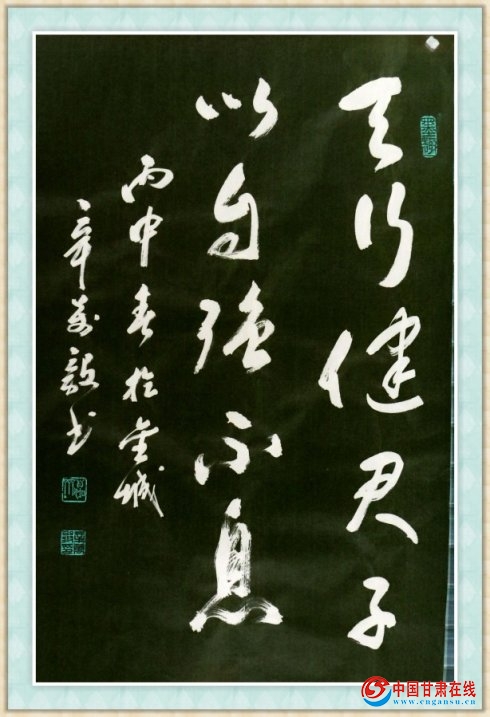 天行健君子
以自强不息
丙申春於金城
辛万毅书
中国甘肃在线
www.cngansu.cn